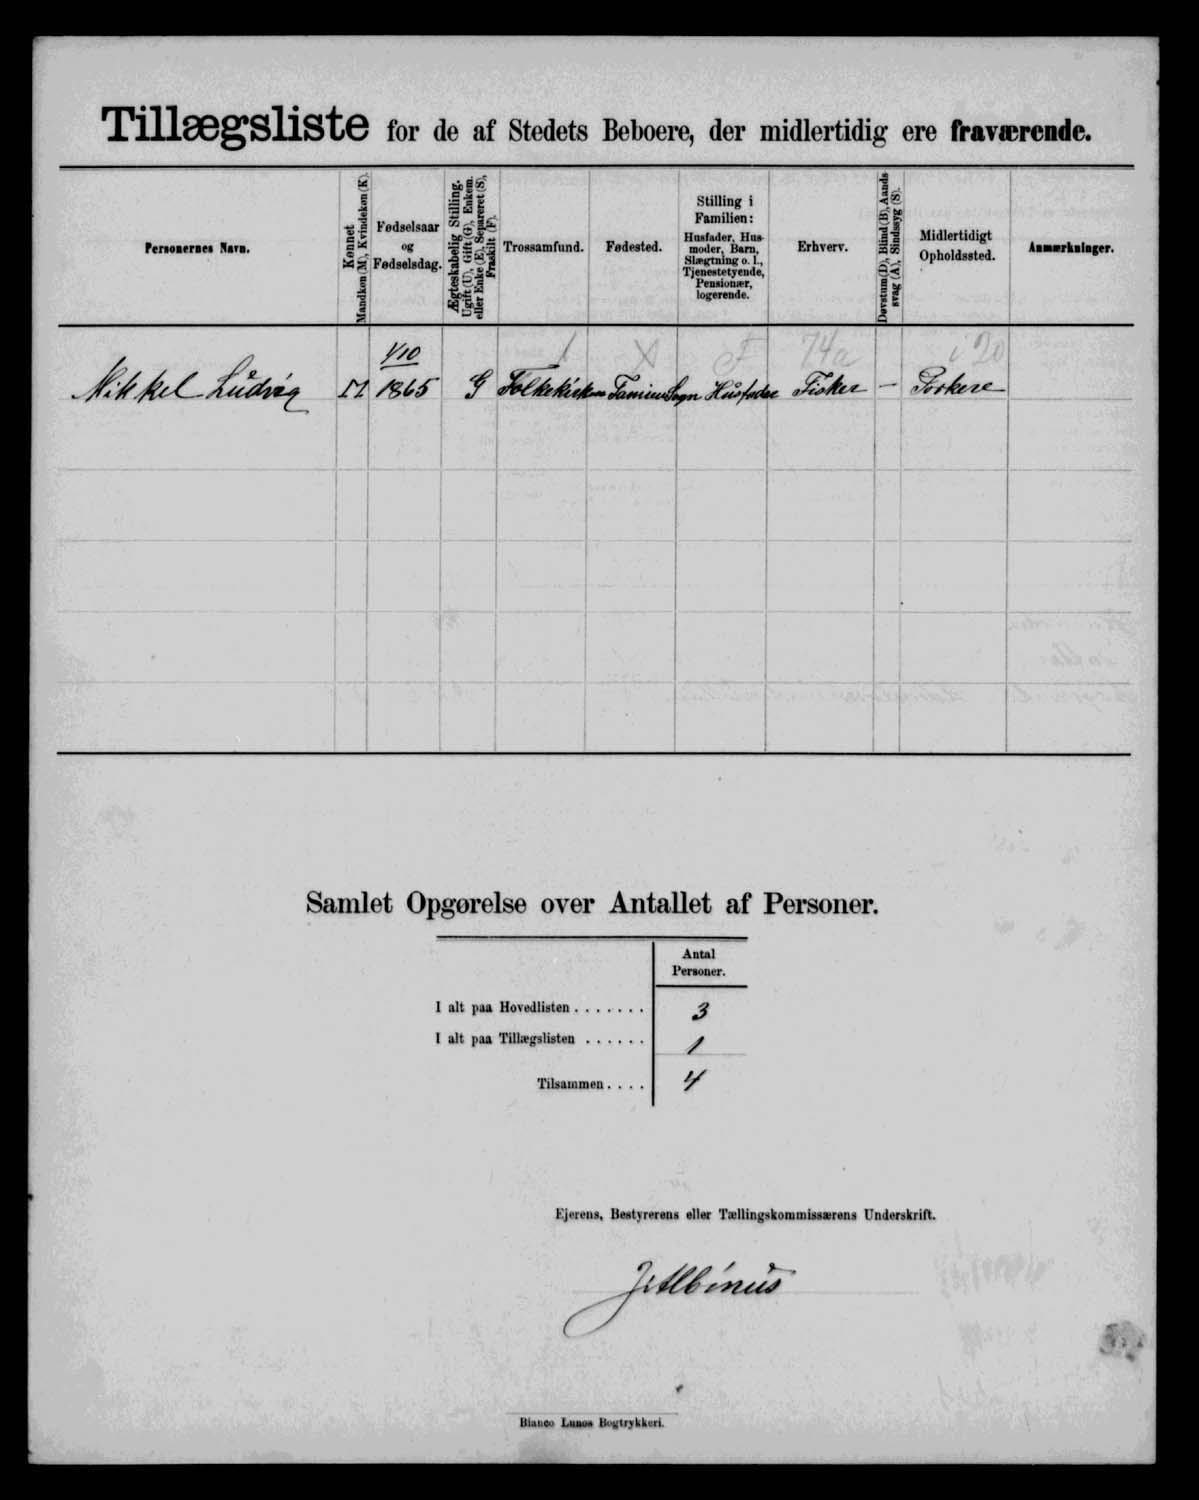 Tillægsliste for de af Stedets Beboere, der midlertidig ere fraværende.
Personernes Navn.
Kønnet
Mandkøn (M), Kvindekøn (K).
Fødselsaar
og
Fødselsdag.
Ægteskabelig Stilling.
Ugift (U), Gift (G), Enkem.
eller Enke (E), Separeret (S),
Fraskilt (F).
Trossamfund.
Fødested.
Stilling i
Familien:
Husfader, Hus-
moder, Barn,
Slægtning o. l.,
Tjenestetyende,
Pensionær,
logerende.
Erhverv.
Døvstum (D), Blind (B), Aands-
svag (A), Sindssyg (S).
Midlertidigt
Opholdssted.
Anmærkninger.
1/10 1 X F 74a i 20
Mikkel Ludvig M 1865 G Folkekirken Famien Sogn Husfader Fisker — Porkere
Samlet Opgørelse over Antallet af Personer.
Antal
Personer.
I alt paa Hovedlisten . . . . . . . 3
I alt paa Tillægslisten . . . . . . 1
Tilsammen . . . . 4
Ejerens, Bestyrerens eller Tællingskommissærens Underskrift.
J Albinus
Bianco Lunos Bogtrykkeri.